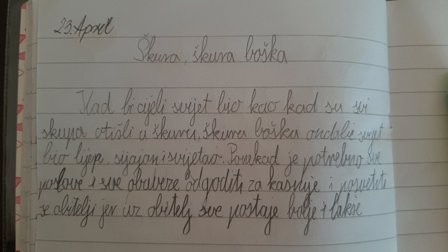 23. April
Škura, škura boška
Kad bi cijeli svijet bio kao kad su svi
skupa otišli u škuru, škuru bošku onda bi svijet
bio lijep, sjajan i svijetao. Ponekad je potrebno sve
poslove i sve obaveze odgoditi za kasnije i posvetiti
se obitelji jer uz obitelj sve postaje bolje i lakše